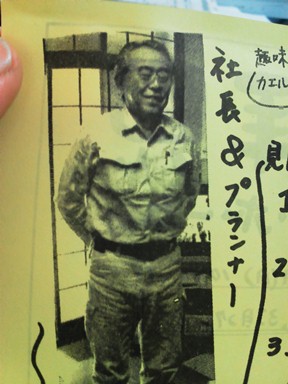 趣味
カエル
社長&プランナー
見
1
2
3.